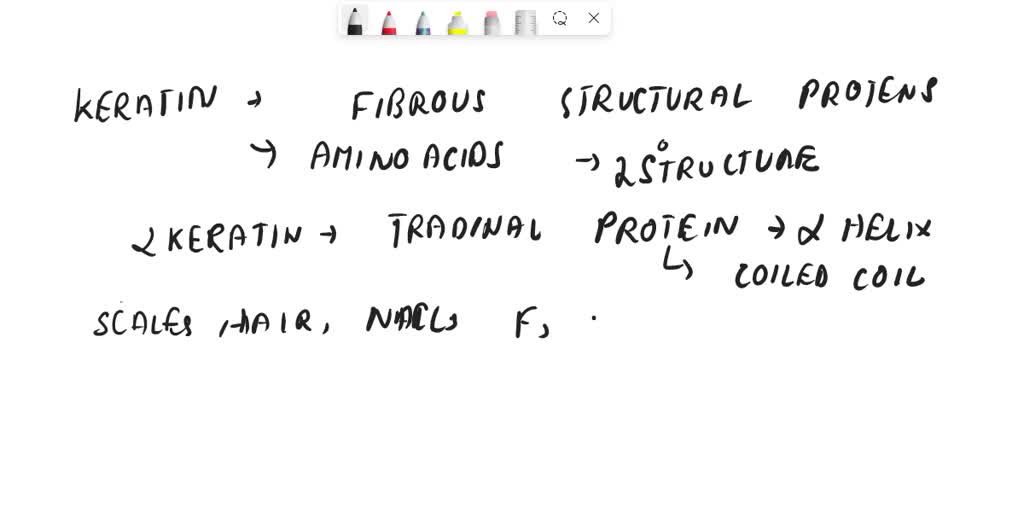 KERATIN → FIBROUS STRUCTURAL PROTENS
↳ AMINO ACIDS → 2° STRUCTURE
α KERATIN → TRADINAL PROTEIN → α HELIX
↳ COILED COIL
SCALES, HAIR, NAILS F,